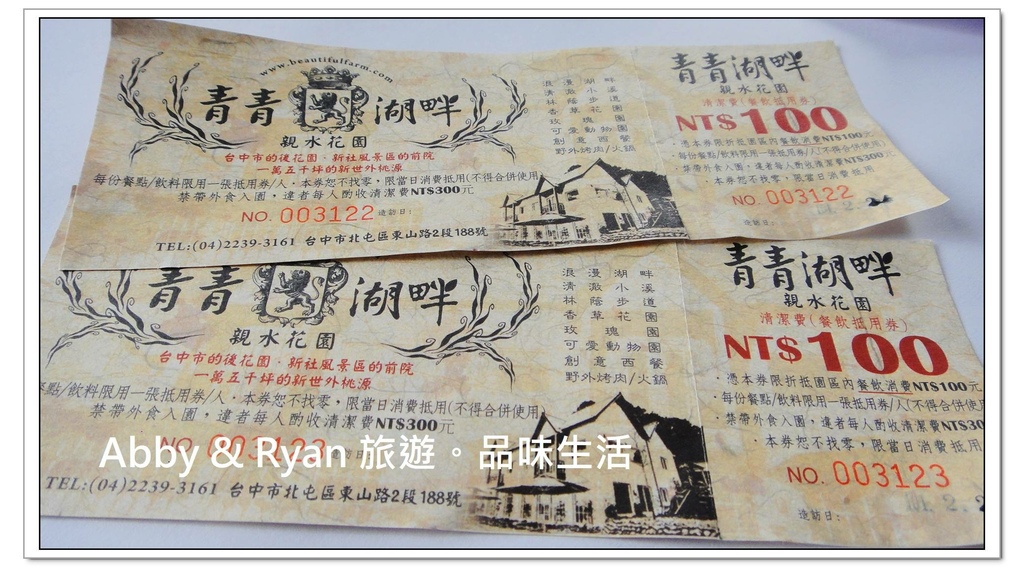 www.beautifulfarm.com
青青 湖畔
親水花園
台中市的後花園．新社風景區的前院
一萬五千坪的新世外桃源
每份餐點/飲料限用一張抵用券/人．本券恕不找零，限當日消費抵用(不得合併使用)
禁帶外食入園，違者每人酌收清潔費NT$300元
NO. 003122 造訪日:
TEL:(04)2239-3161 台中市北屯區東山路2段188號
浪漫湖畔
清澈小溪
林蔭步道
香草花園
玫瑰園
可愛動物園
創意西餐
野外烤肉/火鍋
青青湖畔
親水花園
清潔費(餐飲抵用券)
NT$100
．憑本券限折抵園區內餐飲消費NT$100元
．每份餐點/飲料限用一張抵用券/人(不得合併使用)
．禁帶外食入園，違者每人酌收清潔費NT$300元
．本券恕不找零，限當日消費抵用
NO. 003122
造訪日:
青青 湖畔
親水花園
台中市的後花園．新社風景區的前院
一萬五千坪的新世外桃源
餐點/飲料限用一張抵用券/人．本券恕不找零，限當日消費抵用(不得合併使用
禁帶外食入園，違者每人酌收清潔費NT$300元
NO. 003123 造訪日:
TEL:(04)2239-3161 台中市北屯區東山路2段188號
浪漫湖畔
清澈小溪
林蔭步道
香草花園
玫瑰園
可愛動物園
創意西餐
野外烤肉/火鍋
青青湖畔
親水花園
清潔費(餐飲抵用券)
NT$100
．憑本券限折抵園區內餐飲消費NT$100元
．每份餐點/飲料限用一張抵用券/人(不得合併使用
．禁帶外食入園，違者每人酌收清潔費NT$30
．本券恕不找零，限當日消費抵用
NO. 003123
造訪日:
Abby & Ryan 旅遊。品味生活